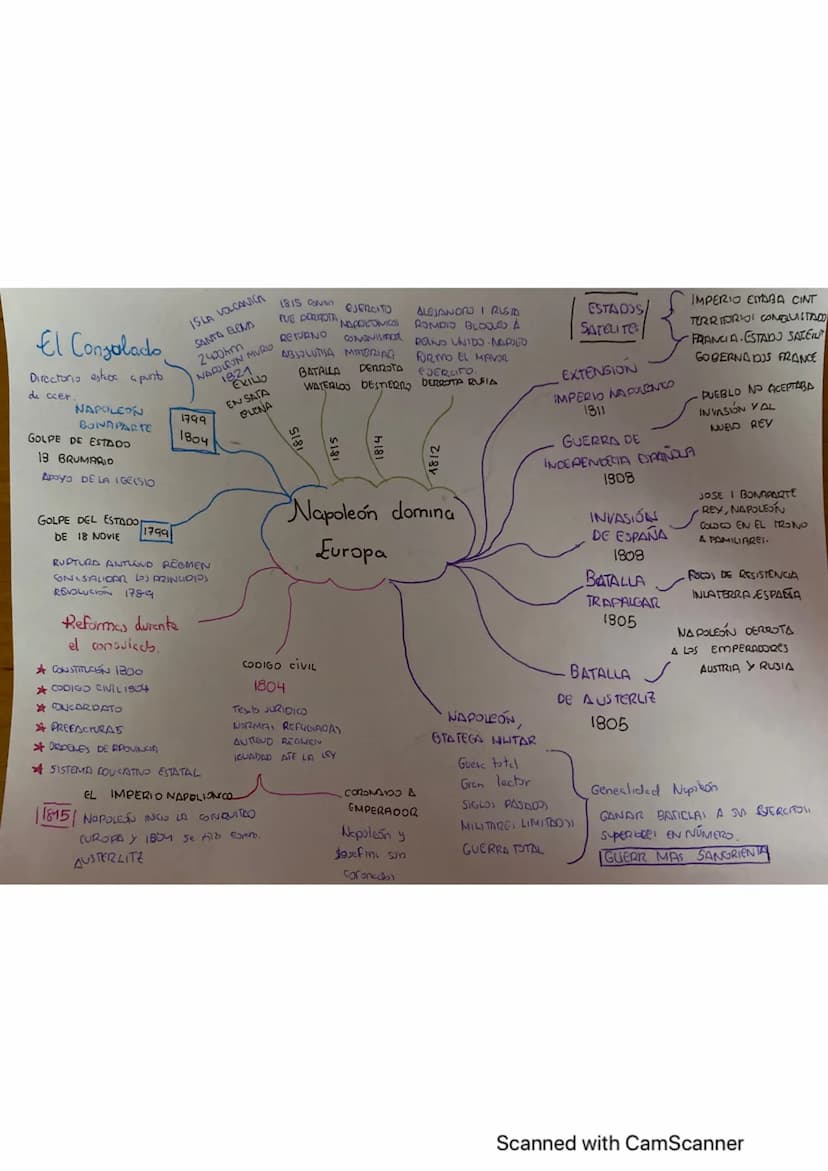 Napoleón domina
Europa
El Conzolado
Directorio estaba a punto
de caer.
NAPOLEÓN
BONAPARTE
1799
1804
GOLPE DE ESTADO
18 BRUMARIO
APOYO DE LA
GOLPE DEL ESTADO
DE 18 NOVIE
1799
RUPTURA ANTIGUO RÉGIMEN
CONSALIDAR LOS PRINCIPIOS
REVOLUCIÓN 1789
Reformas durante
el consulado.
CONSTITUCIÓN 1800
CODIGO CIVIL 1804
CONCARDATO
PREFACTURAS
SISTEMA EDUCATIVO ESTATAL
CODIGO CIVIL
1804
TEXTO JURIDICO
NORMAS
ANTIGUO REGIMEN
IGUALDAD ATE LA LEY
EL IMPERIO
1815
NAPOLEÓN INCIO LA CONQUITAD
EUROPA Y 1804 SE
AUSTERLITZ
CORONADO A
EMPERADOR
Napoleón y
Josefini son
Coronados
ISLA VOLCANICA
SANTA ELENA
2400Km
NAPOLEÓN MURIO
1821
EXILIO
EN SATA
ELENA
1815
1815
FUE DERROTA
RETURNO
ABSOLUTIA
BATALLA
WATERLOO
1815
EJERCITO
NAPOLEONICO
CONQUISTADOR
MATERIAS
DERROTA
DESTIERRO
1814
ALEJANDRO I RUSIA
ROMPIO BLOQUEO A
REINO UNIDO. NAPOLEO
FORMO EL MAYOR
EJERCITO.
DERROTA RUSIA
1812
ESTADOS
SATELITE:
IMPERIO ESTABA CINT
TERRITORIOS CONQUISTADO
FRANCIA. ESTADO SATELIT
GOBERNADOS FRANCE
EXTENSIÓN
IMPERIO NAPOLEONCO
1811
PUEBLO NO ACEPTABA
INVASIÓN Y AL
NUEVO REY
GUERRA DE
INDEPENDECIA ESPAÑOLA
1808
JOSE I BONAPARTE
REY, NAPOLEÓN
COLOCO EN EL TRONO
A FAMILIARES.
INVASIÓN
DE ESPAÑA
1808
BATALLA
TRAFALGAR
1805
FOCOS DE RESISTENCIA
INLATERRA, ESPAÑA
NAPOLEÓN DERROTA
A LOS EMPERADORES
AUSTRIA Y RUSIA
BATALLA
DE AUSTERLIZ
1805
NAPOLEÓN,
ETATEGA MILITAR
Guerc total
Gran lector
SIGLOS PASADOS
MILITARES LIMITADOS
GUERRA TOTAL
Genealidad Napolón
GANAR BATLLAS A SU EJERCITOS
SUPERIORES EN NÚMERO.
GUERR MAS SANGRIENTA
Scanned with CamScanner